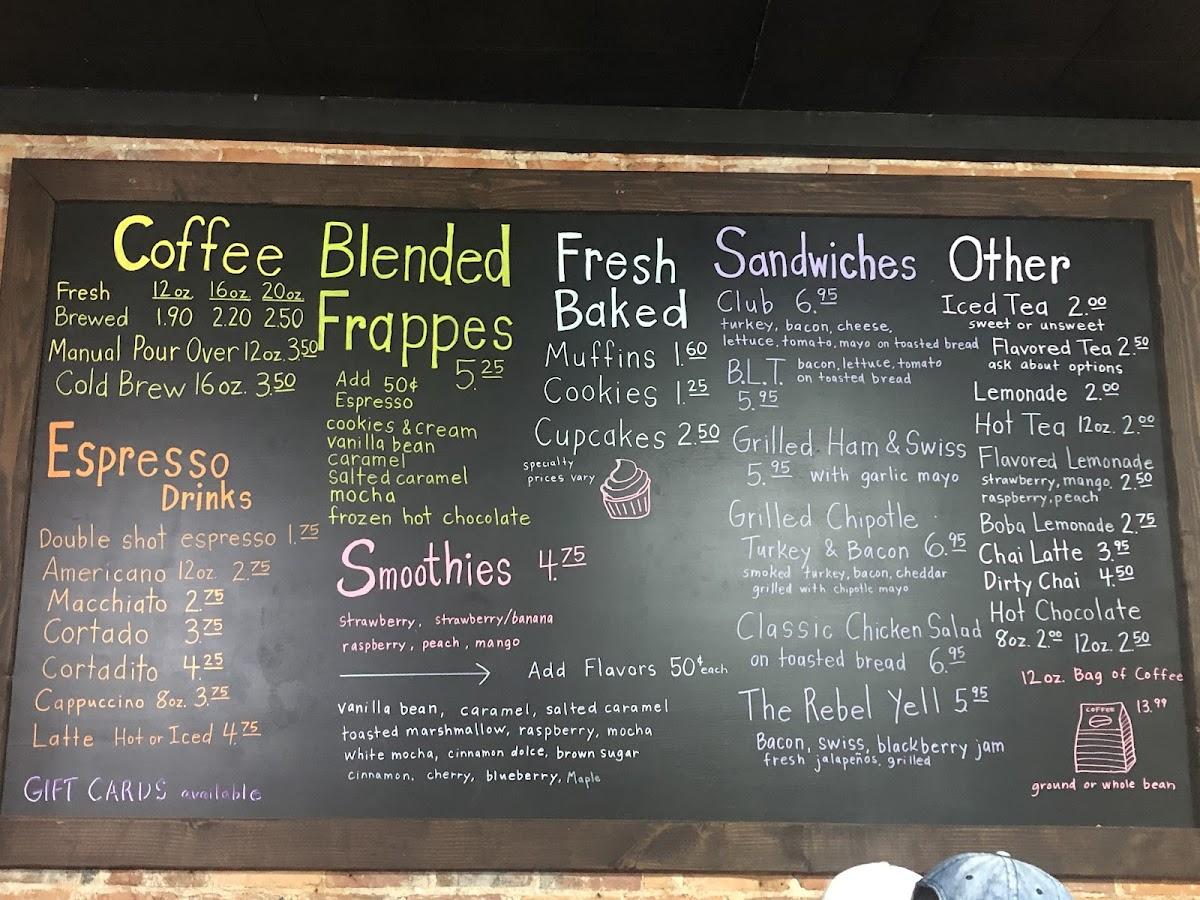 Coffee
Fresh 12oz. 16oz. 20oz.
Brewed 1.90 2.20 2.50
Manual Pour Over 12oz. 3.50
Cold Brew 16oz. 3.50
Espresso
Drinks
Double shot espresso 1.75
Americano 12oz. 2.75
Macchiato 2.75
Cortado 3.75
Cortadito 4.25
Cappuccino 8oz. 3.75
Latte Hot or Iced 4.75
GIFT CARDS available
Blended
Frappes
5.25
Add 50¢
Espresso
cookies & cream
vanilla bean
caramel
salted caramel
mocha
frozen hot chocolate
Smoothies 4.75
strawberry, strawberry/banana
raspberry, peach, mango
Add Flavors 50¢ each
vanilla bean, caramel, salted caramel
toasted marshmallow, raspberry, mocha
white mocha, cinnamon dolce, brown sugar
cinnamon, cherry, blueberry, Maple
Fresh
Baked
Muffins 1.60
Cookies 1.25
Cupcakes 2.50
specialty
prices vary
Sandwiches
Club 6.95
turkey, bacon, cheese,
lettuce, tomato, mayo on toasted bread
B.L.T. bacon, lettuce, tomato
on toasted bread
5.95
Grilled Ham & Swiss
5.95 with garlic mayo
Grilled Chipotle
Turkey & Bacon 6.95
smoked turkey, bacon, cheddar
grilled with chipotle mayo
Classic Chicken Salad
on toasted bread 6.95
The Rebel Yell 5.95
Bacon, swiss, blackberry jam
fresh jalapeños, grilled
Other
Iced Tea 2.00
sweet or unsweet
Flavored Tea 2.50
ask about options
Lemonade 2.00
Hot Tea 12oz. 2.00
Flavored Lemonade
strawberry, mango, 2.50
raspberry, peach
Boba Lemonade 2.75
Chai Latte 3.95
Dirty Chai 4.50
Hot Chocolate
8oz. 2.00 12oz. 2.50
12oz. Bag of Coffee
COFFEE
13.99
ground or whole bean